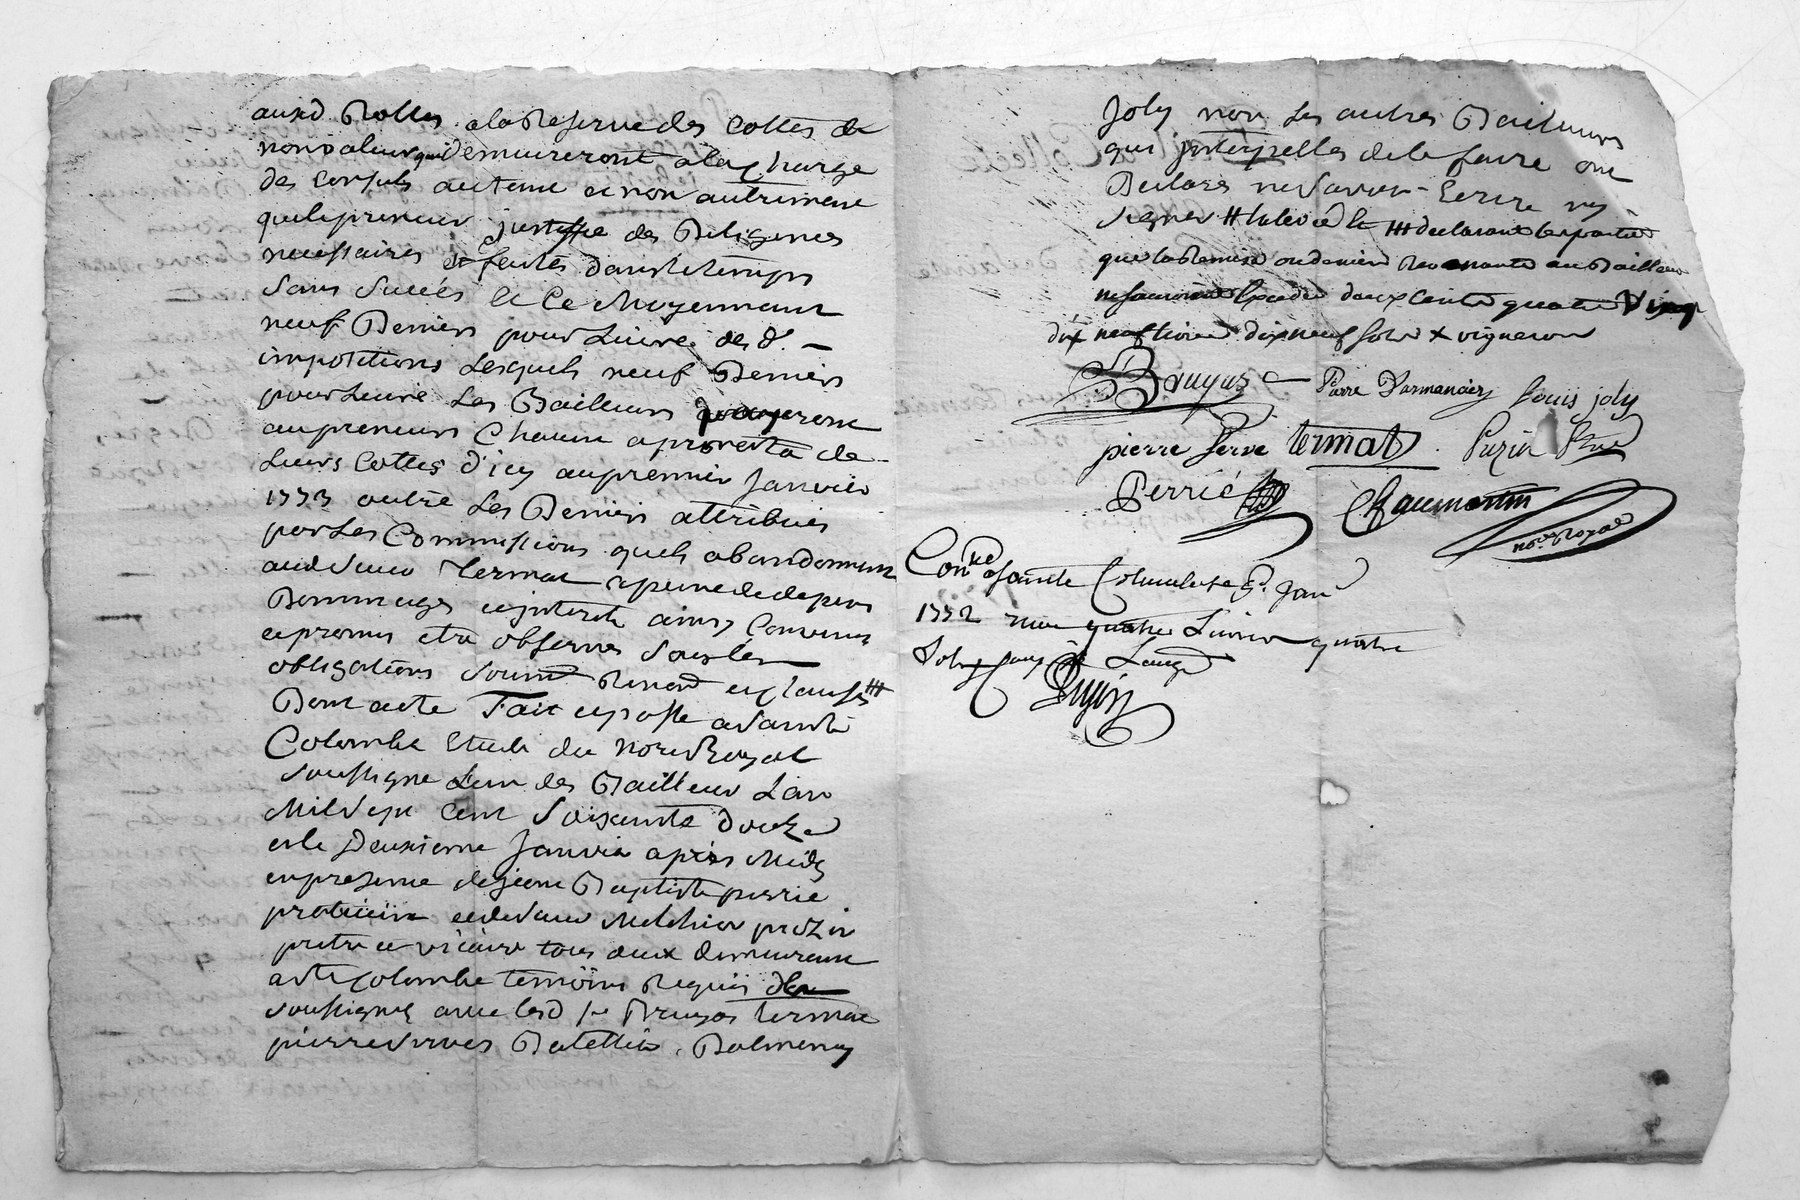 auxd Rolles a la Reserve des Cottes de
non valeur qui demeureront a la Charge
des Consuls autant et non autrement
que le preneur justiffie des Diligences
necessaires & faites dans le temps
sans succés Et Ce Moyennant
neuf Deniers pour Livre des d. —
impositions Lesquels neuf Deniers
pour Livre Les Bailleurs payeront
au preneur Chacun a prorata de
Leurs Cottes d'icy au premier Janvier
1773 outre Les Deniers attribués
par Les Commissions quils abandonnent
aud sieur Termat a peine de depens
Dommages et interets ainsy Convenu
et promis etre observé sous les
obligations soumd Renond et Clauses ##
Dont acte Fait et passé a Sainte
Colombe Etude du no.re Royal
soussigné L'un des Bailleurs L'an
Mil sept Cent soixante douze
et le Deuxieme Janvier après Midy
en presence de jean Baptiste perrié
praticien et de sieur Melchior puzin
pretre et vicaire tous deux demeurant
a ste Colombe temoins Requis
soussignés avec lesd sr Bruyas termat
pierre serves Dalmenay
Joly non Les autres Bailleurs
qui interpellés de le faire ont
Declaré ne savoir Ecrire ny
signer declarant les parties
que la Remise ou deniers Revenants au Bailleur
ne sauroient Exceder deux Cents quatre Vingt
dix neuf livres dix neuf sols x vigneron
Bruyas Pierre Darmancier louis joly
pierre serve termat Puzin
Perrié Chaumartin
no.re Royal
Con.lé a sainte Colombe le 3.e Janv
1772 Recu quatre Livres quatre
sols
Guyon